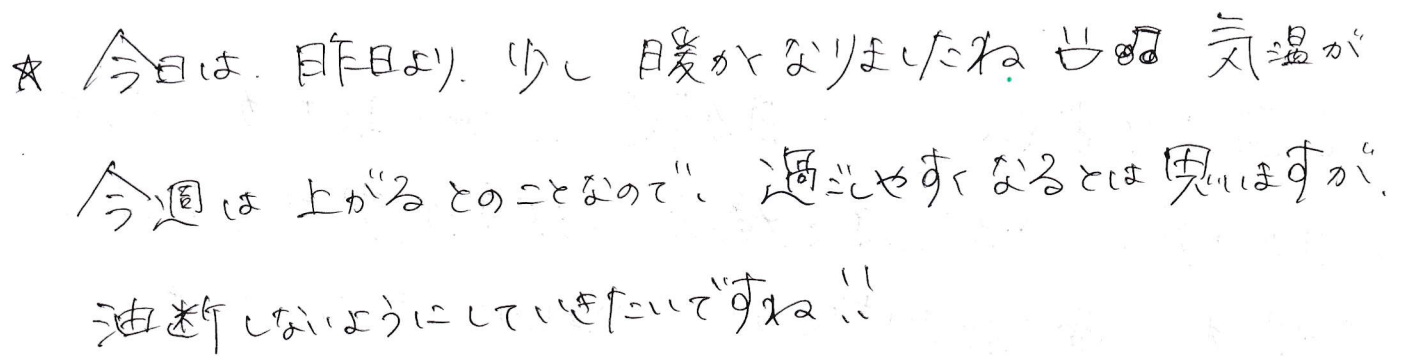 ☆ 今日は、昨日より、少し 暖かくなりましたね 気温が
今週は 上がるとのことなので、過ごしやすくなるとは思いますが、
油断しないようにしていきたいですね!!